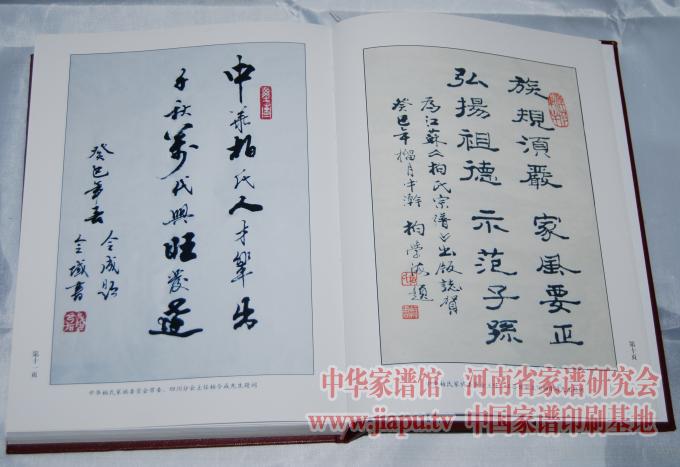 族規須嚴 家風要正
弘揚祖德 示范子孫
為江蘇《柏氏宗譜》出版誌賀
癸巳年榴月中瀚 柏學海題
第十頁
中華柏氏人才輩出
千秋萬代興旺發達
癸巳年春 令成題
第十一頁
中华柏氏家族委员会常委、四川分会主任柏令成先生题词
中华家谱馆 河南省家谱研究会
www.jiapu.tv 中国家谱印刷基地